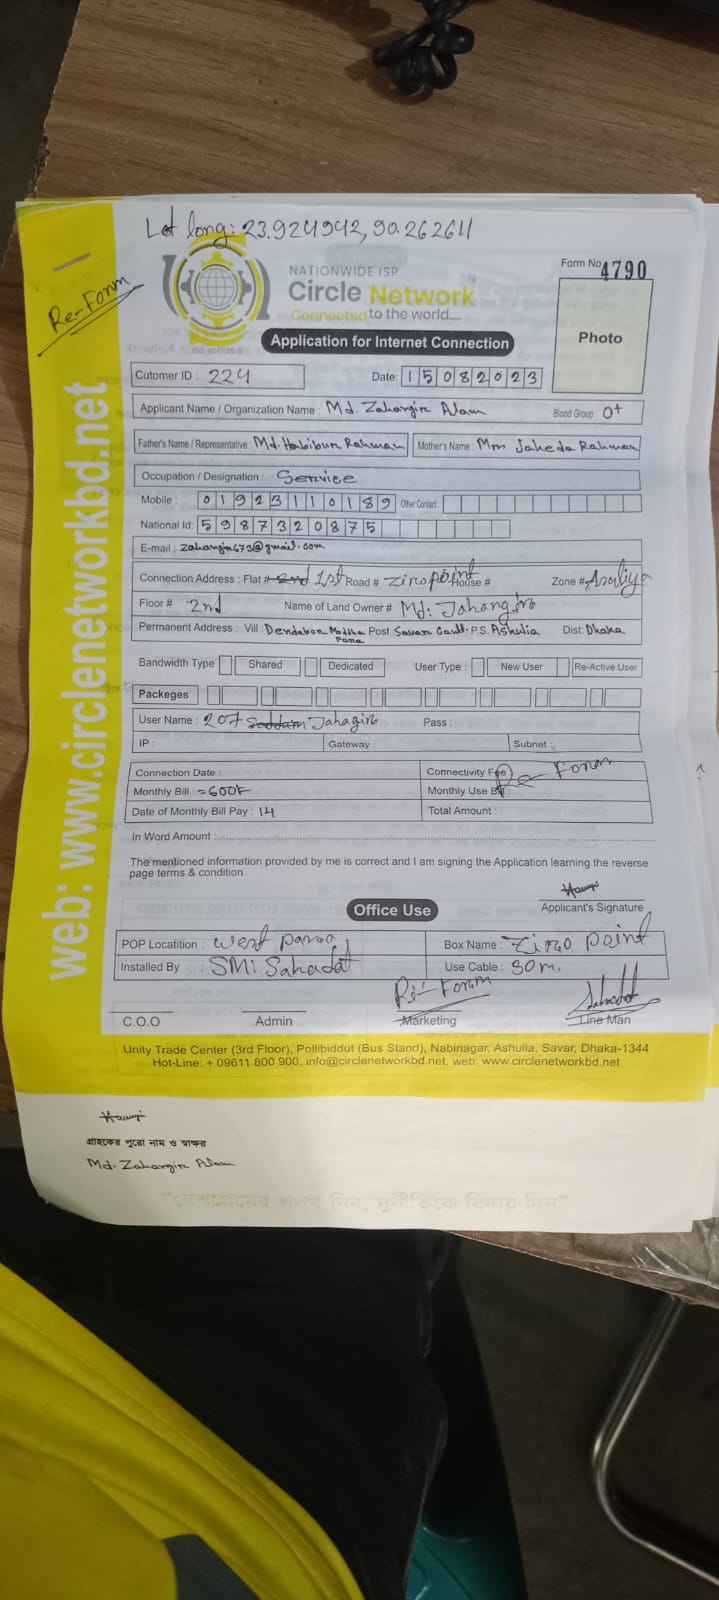 Lat long: 23.924942, 90.262611
Re-Form
NATIONWIDE ISP
Circle Network
Connected to the world.....
Form No 4790
Photo
Application for Internet Connection
Cutomer ID : 224 Date: 15082023
Applicant Name / Organization Name : Md. Zahangir Alam Blood Group : O+
Father's Name / Representative : Md. Habibur Rahman Mother's Name : Mrs Jaheda Rahman
Occupation / Designation : Service
Mobile : 01923110189 Other Contact :
National Id: 5987320875
E-mail : zahangir673@gmail.com
Connection Address : Flat # 2nd 1st Road # Ziro point House # Zone # Asuliya
Floor # 2nd Name of Land Owner # Md: Jahangir
Permanent Address : Vill : Dendabor Moddha Para Post : Savar Cantt. P.S. Ashulia Dist: Dhaka
Bandwidth Type Shared Dedicated User Type : New User Re-Active User
Packeges
User Name : 207 Saddam Jahagir Pass :
IP : Gateway : Subnet :
Connection Date : Connectivity Fee Re-Form
Monthly Bill : =600৳ Monthly Use Bill :
Date of Monthly Bill Pay : 14 Total Amount :
In Word Amount :
The mentioned information provided by me is correct and I am signing the Application learning the reverse
page terms & condition.
Applicant's Signature
Office Use
POP Locatition : West para Box Name : Ziro point
Installed By SMI Sahadat Use Cable : 30m.
Re-Foram
C.O.O Admin Marketing Line Man
Unity Trade Center (3rd Floor), Pollibiddut (Bus Stand), Nabinagar, Ashulia, Savar, Dhaka-1344
Hot-Line: + 09611 800 900, info@circlenetworkbd.net, web: www.circlenetworkbd.net
web: www.circlenetworkbd.net
গ্রাহকের পুরো নাম ও স্বাক্ষর
Md. Zahangir Alam